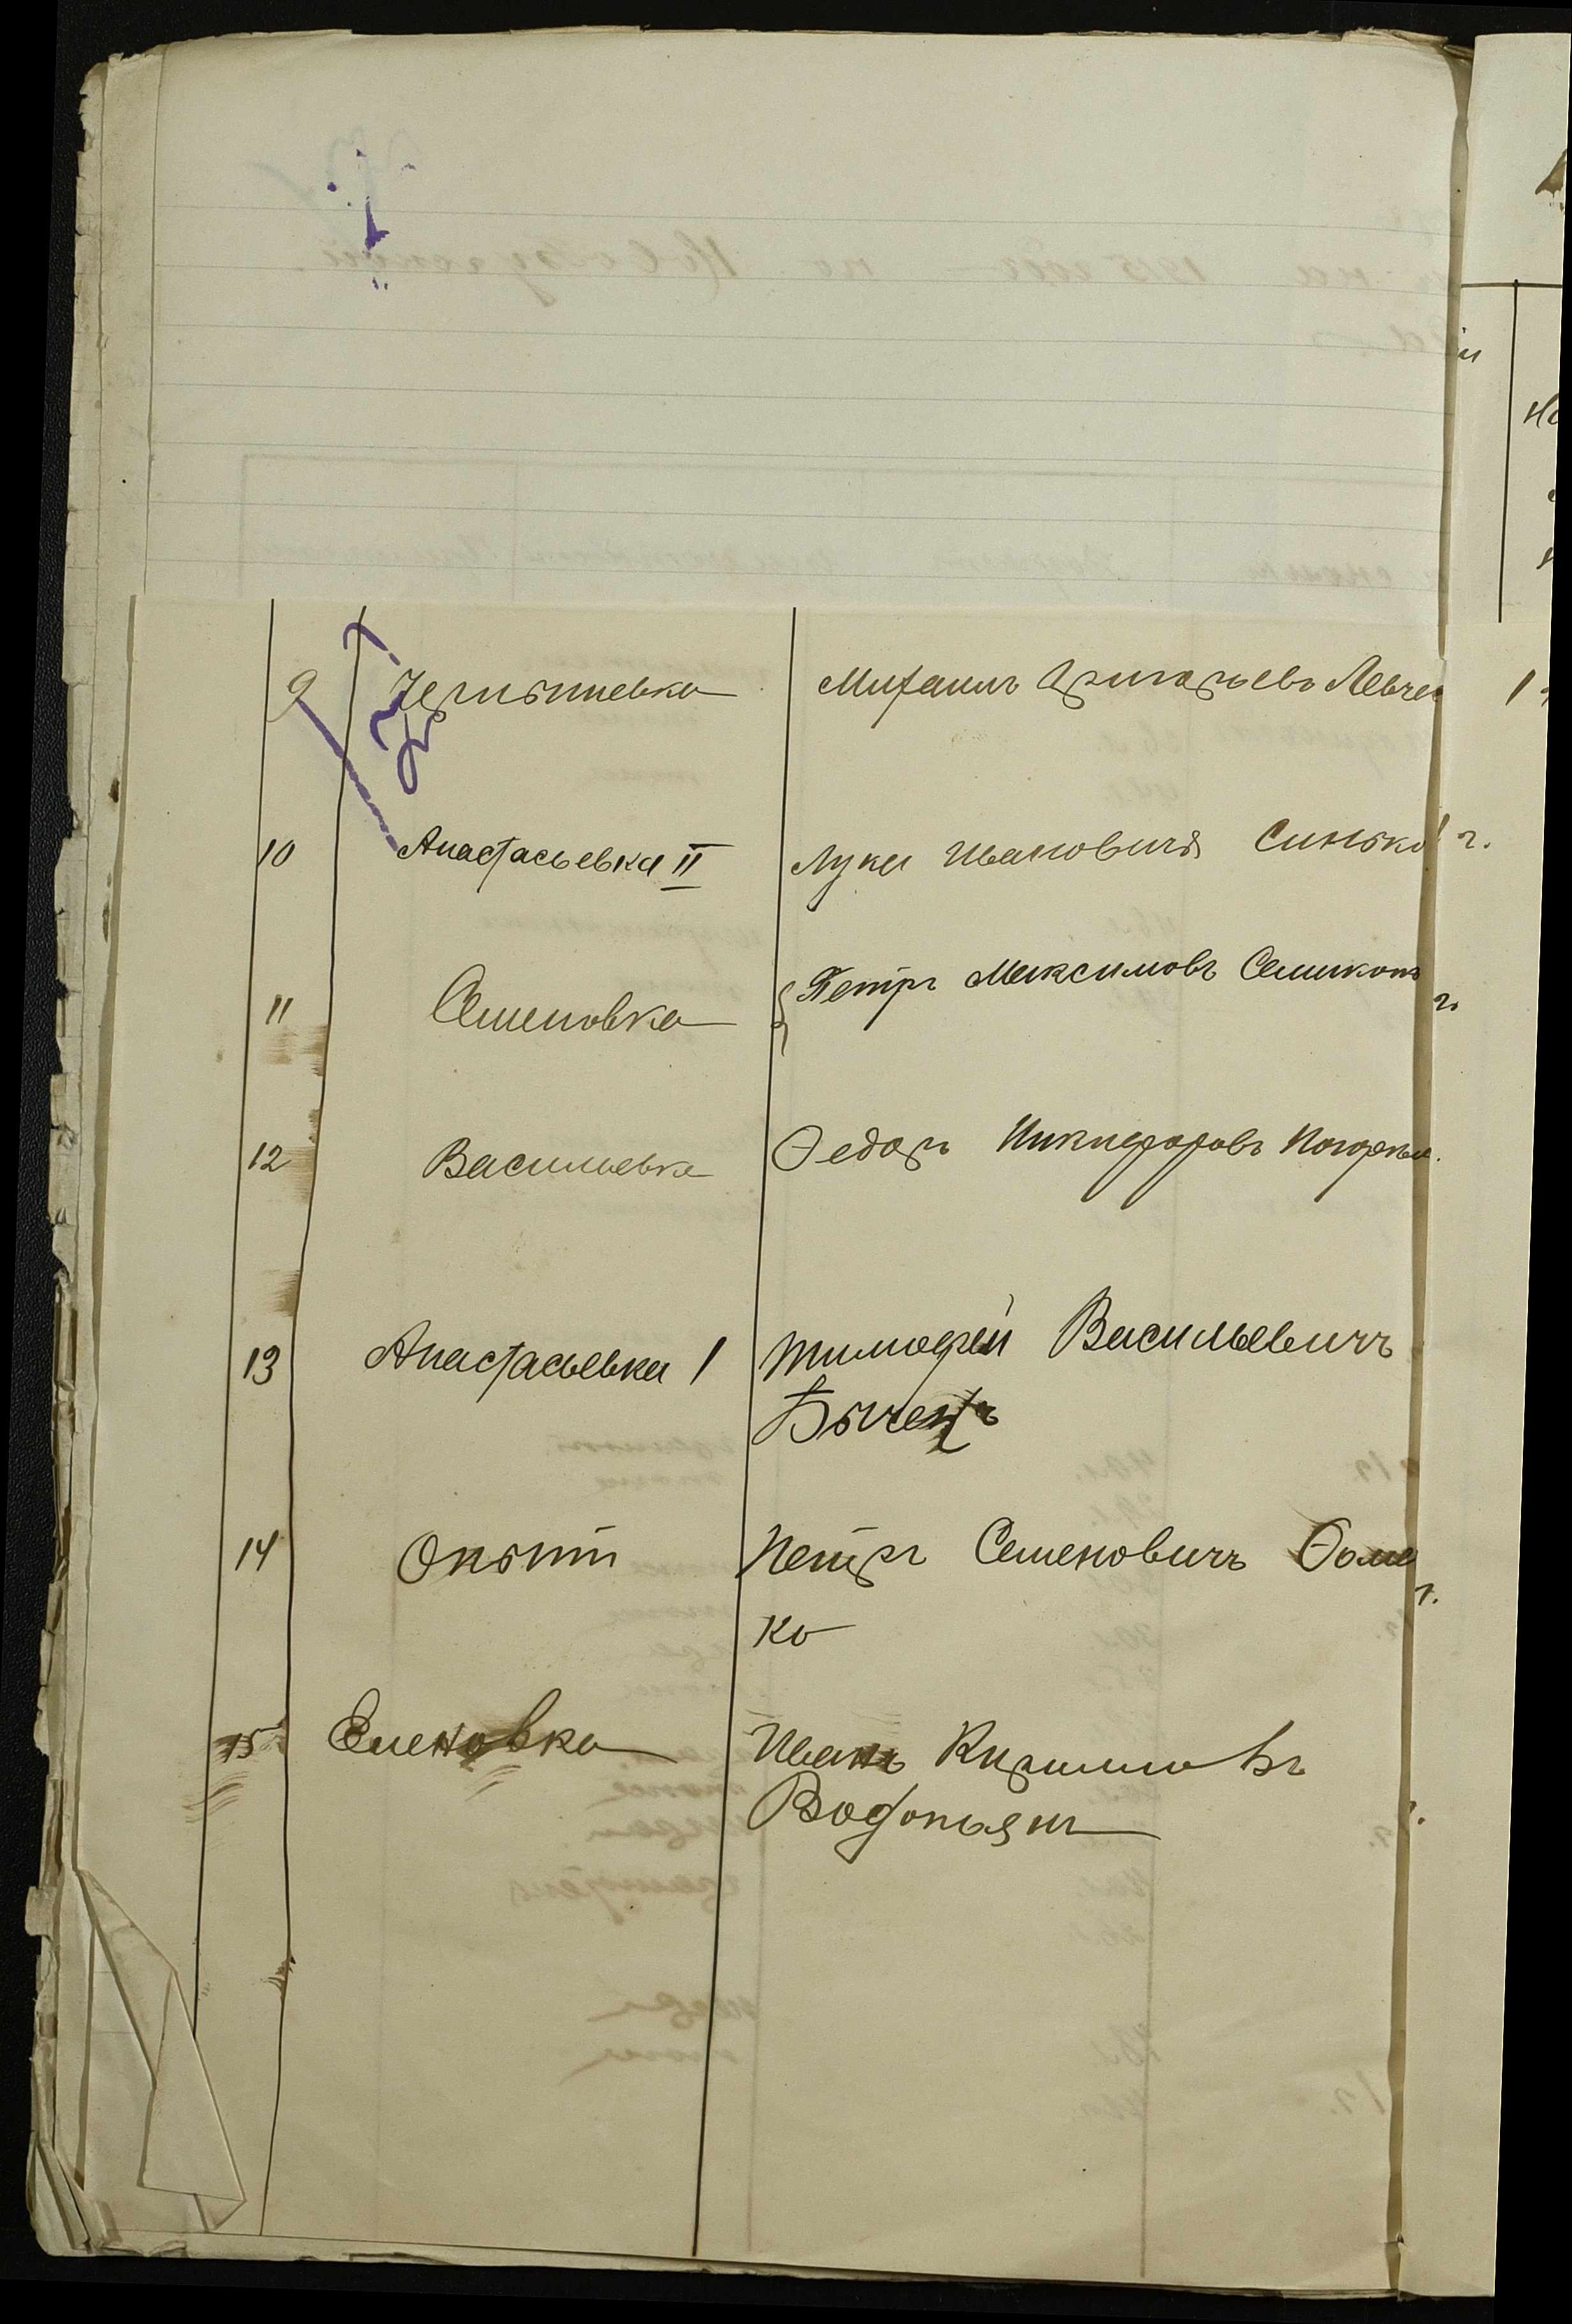 9 Чернышевка Михаилъ Григорьевъ Левчен
10 Анастасьевка II Лука Ивановичъ Синько г.
11 Семеновка Петръ Максимовъ
12 Васильевка Ѳедоръ Никифоровъ
13 Анастасьевка 1 Тимофей Васильевичъ
14 Опытъ Петръ Семеновичъ Ѳоме
ко
15 Еленовка Иванъ Кирилловъ
Водопьянъ